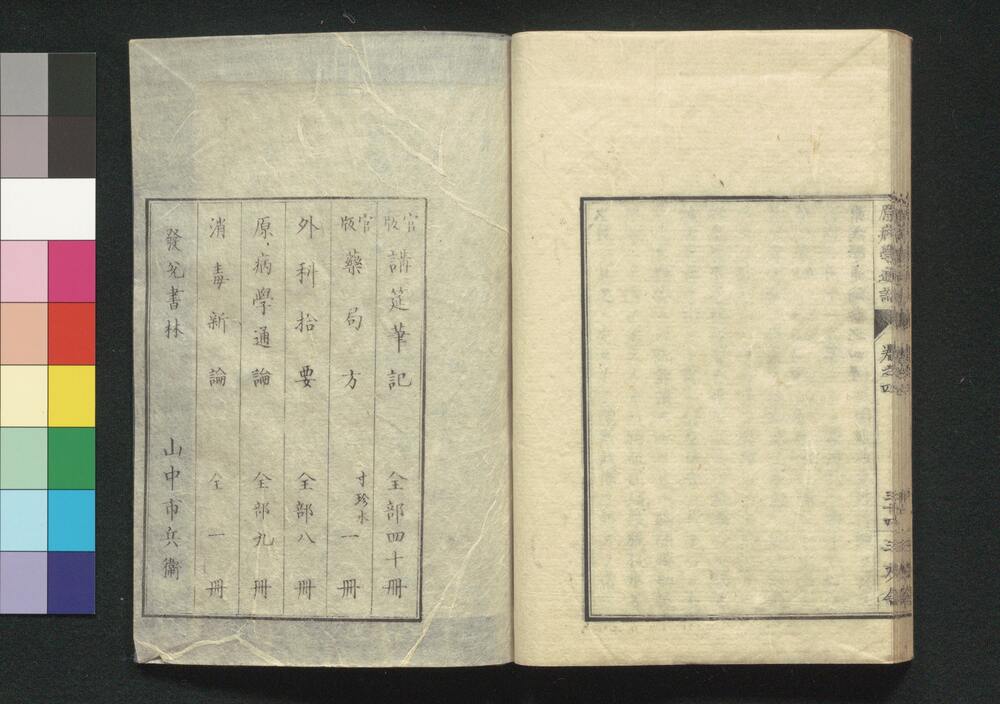 原病學通論
卷之四
三十四
官版 講筵筆記 全部四十冊
官版 藥局方 寸珍本 一冊
外科拾要 全部八冊
原病學通論 全部九冊
消毒新論 全一冊
發兌書林 山中市兵衞